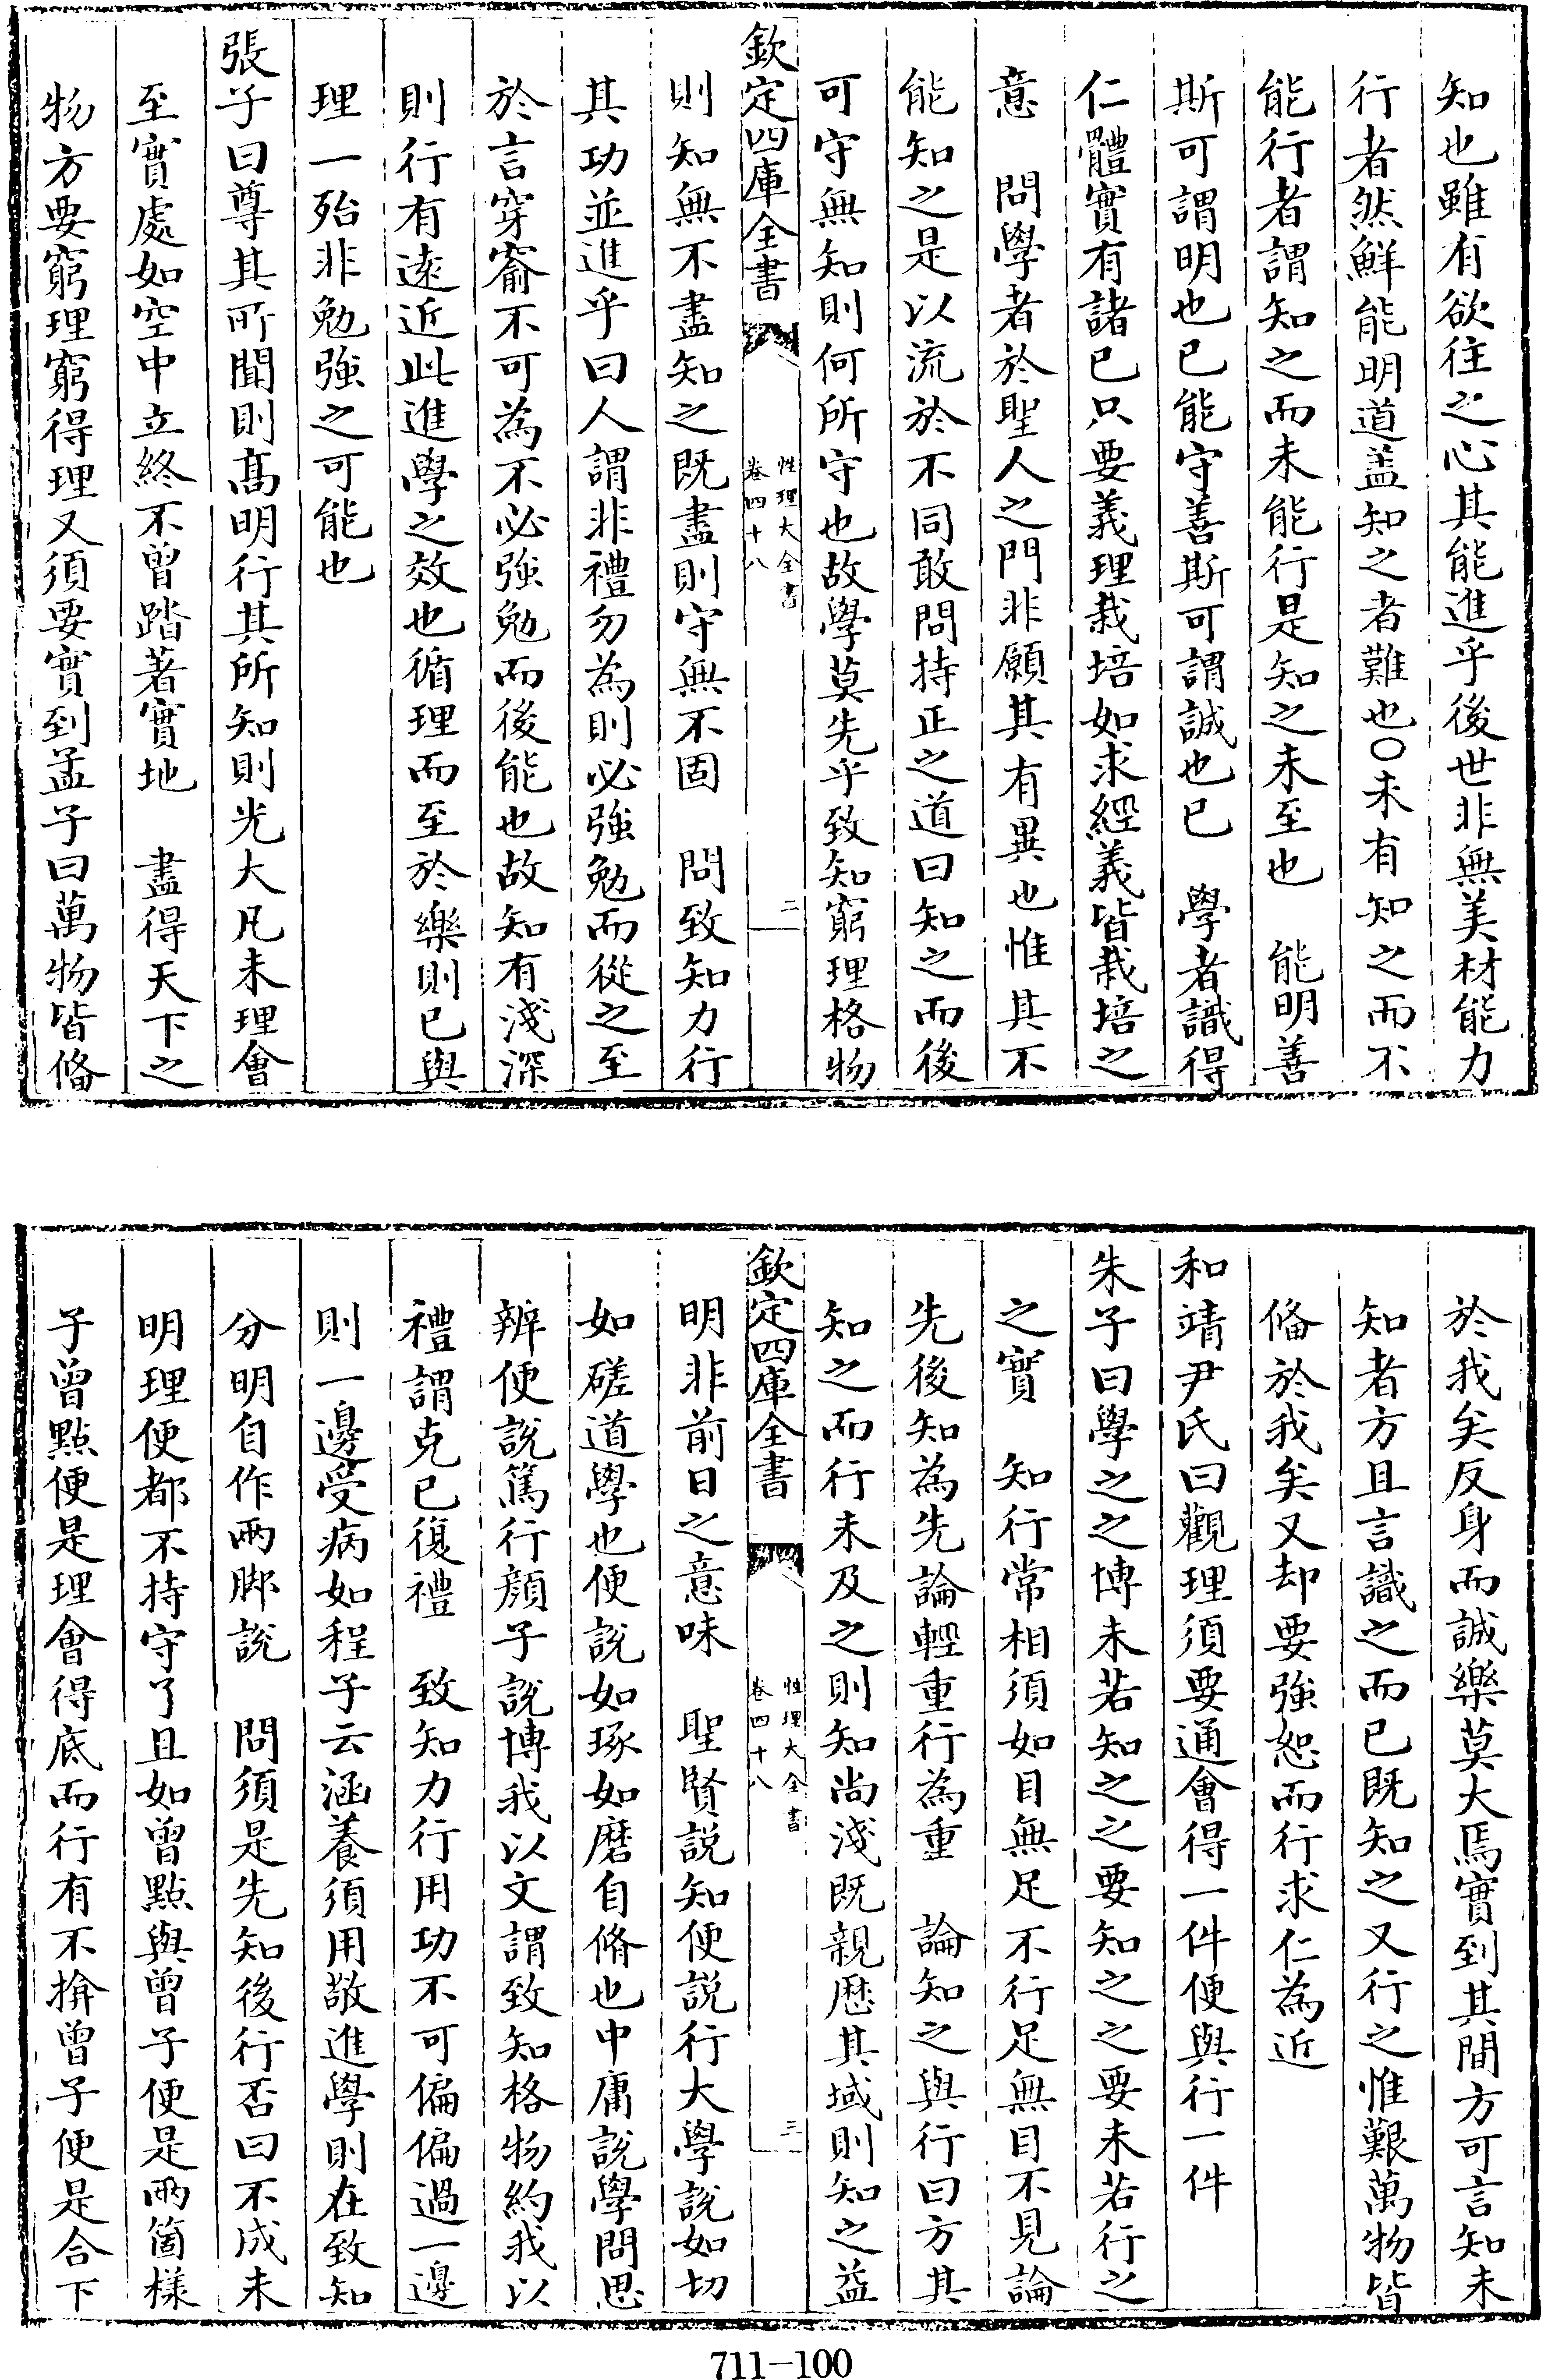 知也雖有欲往之心其能進乎後世非無美材能力
行者然鮮能明道盖知之者難也○未有知之而不
能行者謂知之而未能行是知之未至也　能明善
斯可謂明也已能守善斯可謂誠也已　學者識得
仁體實有諸已只要義理栽培如求經義皆栽培之
意　問學者於聖人之門非願其有異也惟其不
能知之是以流於不同敢問持正之道曰知之而後
可守無知則何所守也故學莫先乎致知窮理格物
欽定四庫全書
性理大全書
卷四十八
二
則知無不盡知之既盡則守無不固　問致知力行
其功並進乎曰人謂非禮勿為則必強勉而從之至
於言穿窬不可為不必強勉而後能也故知有淺深
則行有遠近此進學之效也循理而至於樂則已與
理一殆非勉強之可能也
張子曰尊其所聞則髙明行其所知則光大凡未理會
至實處如空中立終不曾踏著實地　盡得天下之
物方要窮理窮得理又須要實到孟子曰萬物皆偹
於我矣反身而誠樂莫大焉實到其間方可言知未
知者方且言識之而已既知之又行之惟艱萬物皆
偹於我矣又却要強恕而行求仁為近
和靖尹氏曰觀理須要通會得一件便與行一件
朱子曰學之之博未若知之之要知之之要未若行之
之實　知行常相須如目無足不行足無目不見論
先後知為先論輕重行為重　論知之與行曰方其
知之而行未及之則知尚淺既親歴其域則知之益
欽定四庫全書
性理大全書
卷四十八
三
明非前日之意味　聖賢説知便説行大學說如切
如磋道學也便說如琢如磨自脩也中庸說學問思
辨便說篤行顔子說博我以文謂致知格物約我以
禮謂克已復禮　致知力行用功不可偏偏過一邊
則一邊受病如程子云涵養須用敬進學則在致知
分明自作兩脚説　問須是先知後行否曰不成未
明理便都不持守了且如曾點與曾子便是兩箇樣
子曾點便是理會得底而行有不揜曾子便是合下
711-100